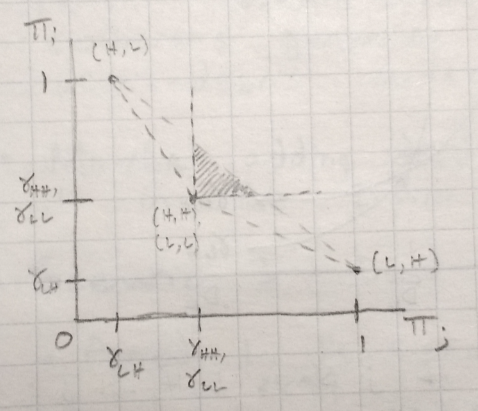 Πi
(H,L)
1
γHH,
γLL
(H,H),
(L,L)
γLH
(L,H)
0
γLH
γHH,
γLL
1
Πj